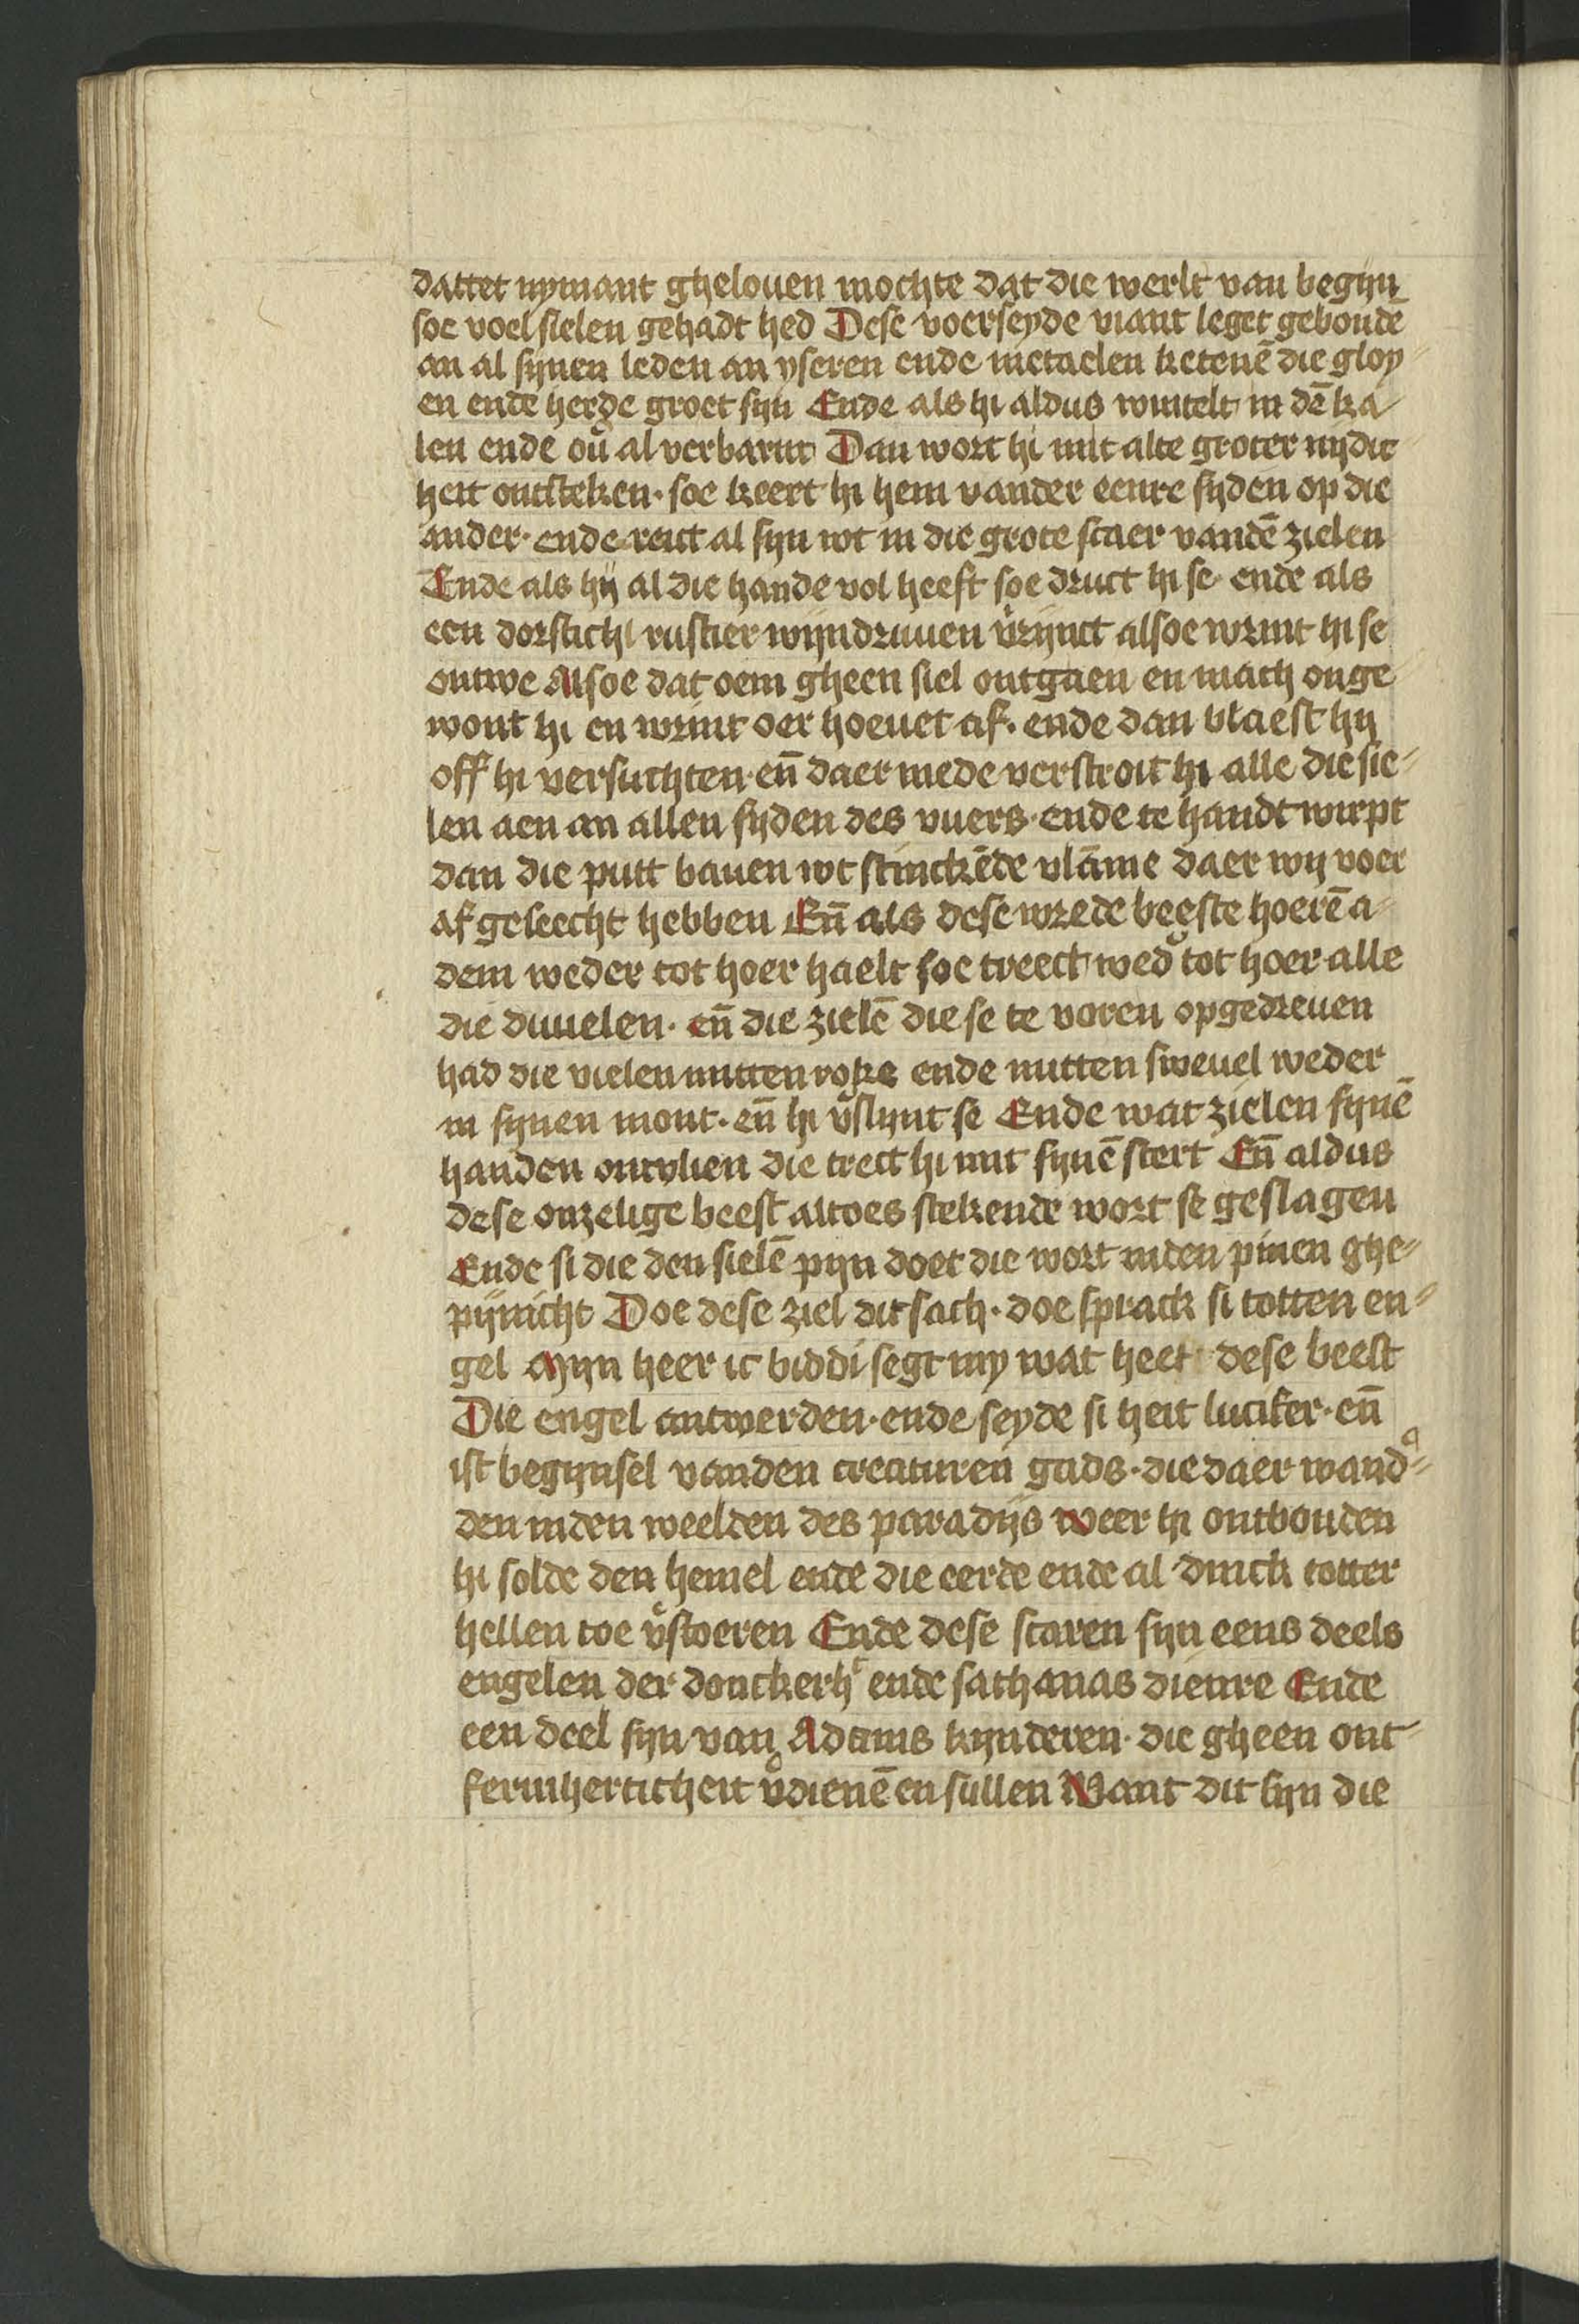 dattet nymant ghelouen mochte dat die werlt van begyn
soe voel sielen gehadt hed Dese voerseyde viant leget gebonde
an al synen leden an yseren ende metaelen ketenē die gloy
en ende herde groet syn Ende als hi aldus wintelt in dē ka
len ende ou᷑ al verbarnt Dan wort hi mit alte groter nydic
heit ontsteken · soe keert hi hem vander eenre syden op die
ander · ende reict al syn wt in die grote scaer vandē zielen
Ende als hij al die hande vol heeft soe druct hi se ende als
een dorstich rustier wijndruuen v᷑rijnct alsoe wrint hi se
ontwe Alsoe dat oem gheen siel ontgaen en mach onge
wont hi en wrint oer hoeuet af · ende dan blaest hij
off hi versuchten · en̄ daer mede verstroit hi alle die sie
len aen an allen syden des vuers · ende te handt wirpt
dan die putt bauen wt stinckēde vlāme daer wy voer
af geseecht hebben En̄ als dese wrede beeste hoerē a
dem weder tot hoer haelt soe treect wed᷑ tot hoer alle
die duuelen · en̄ die zielē die se te voren opgedreuen
had die vielen mitten roke ende mitten sweuel weder
in synen mont · en̄ hi v᷑slynt se Ende wat zielen synē
handen ontvlien die trect hi mit synē stert En̄ aldus
dese onzelige beest altoes stekende wort se geslagen
Ende si die den sielē pyn doet die wort inden pinen ghe
pijnicht Doe dese ziel dit sach · doe sprack si totten en
gel Myn heer ic biddi segt my wat heet dese beest
Die engel antwerden · ende seyde si heit lucifer · en̄
ist begynsel vanden creaturen gads · die daer wand᷑
den inden weelden des paradijs weer hi ontbonden
hi solde den hemel ende die eerde ende al dinck totter
hellen toe v᷑stoeren Ende dese scaren syn eens deels
engelen der donckerhᵗ ende sathanas dienre Ende
een deel syn van Adams kynderen · die gheen ont
fermherticheit v᷑dienē en sullen Want dit syn die